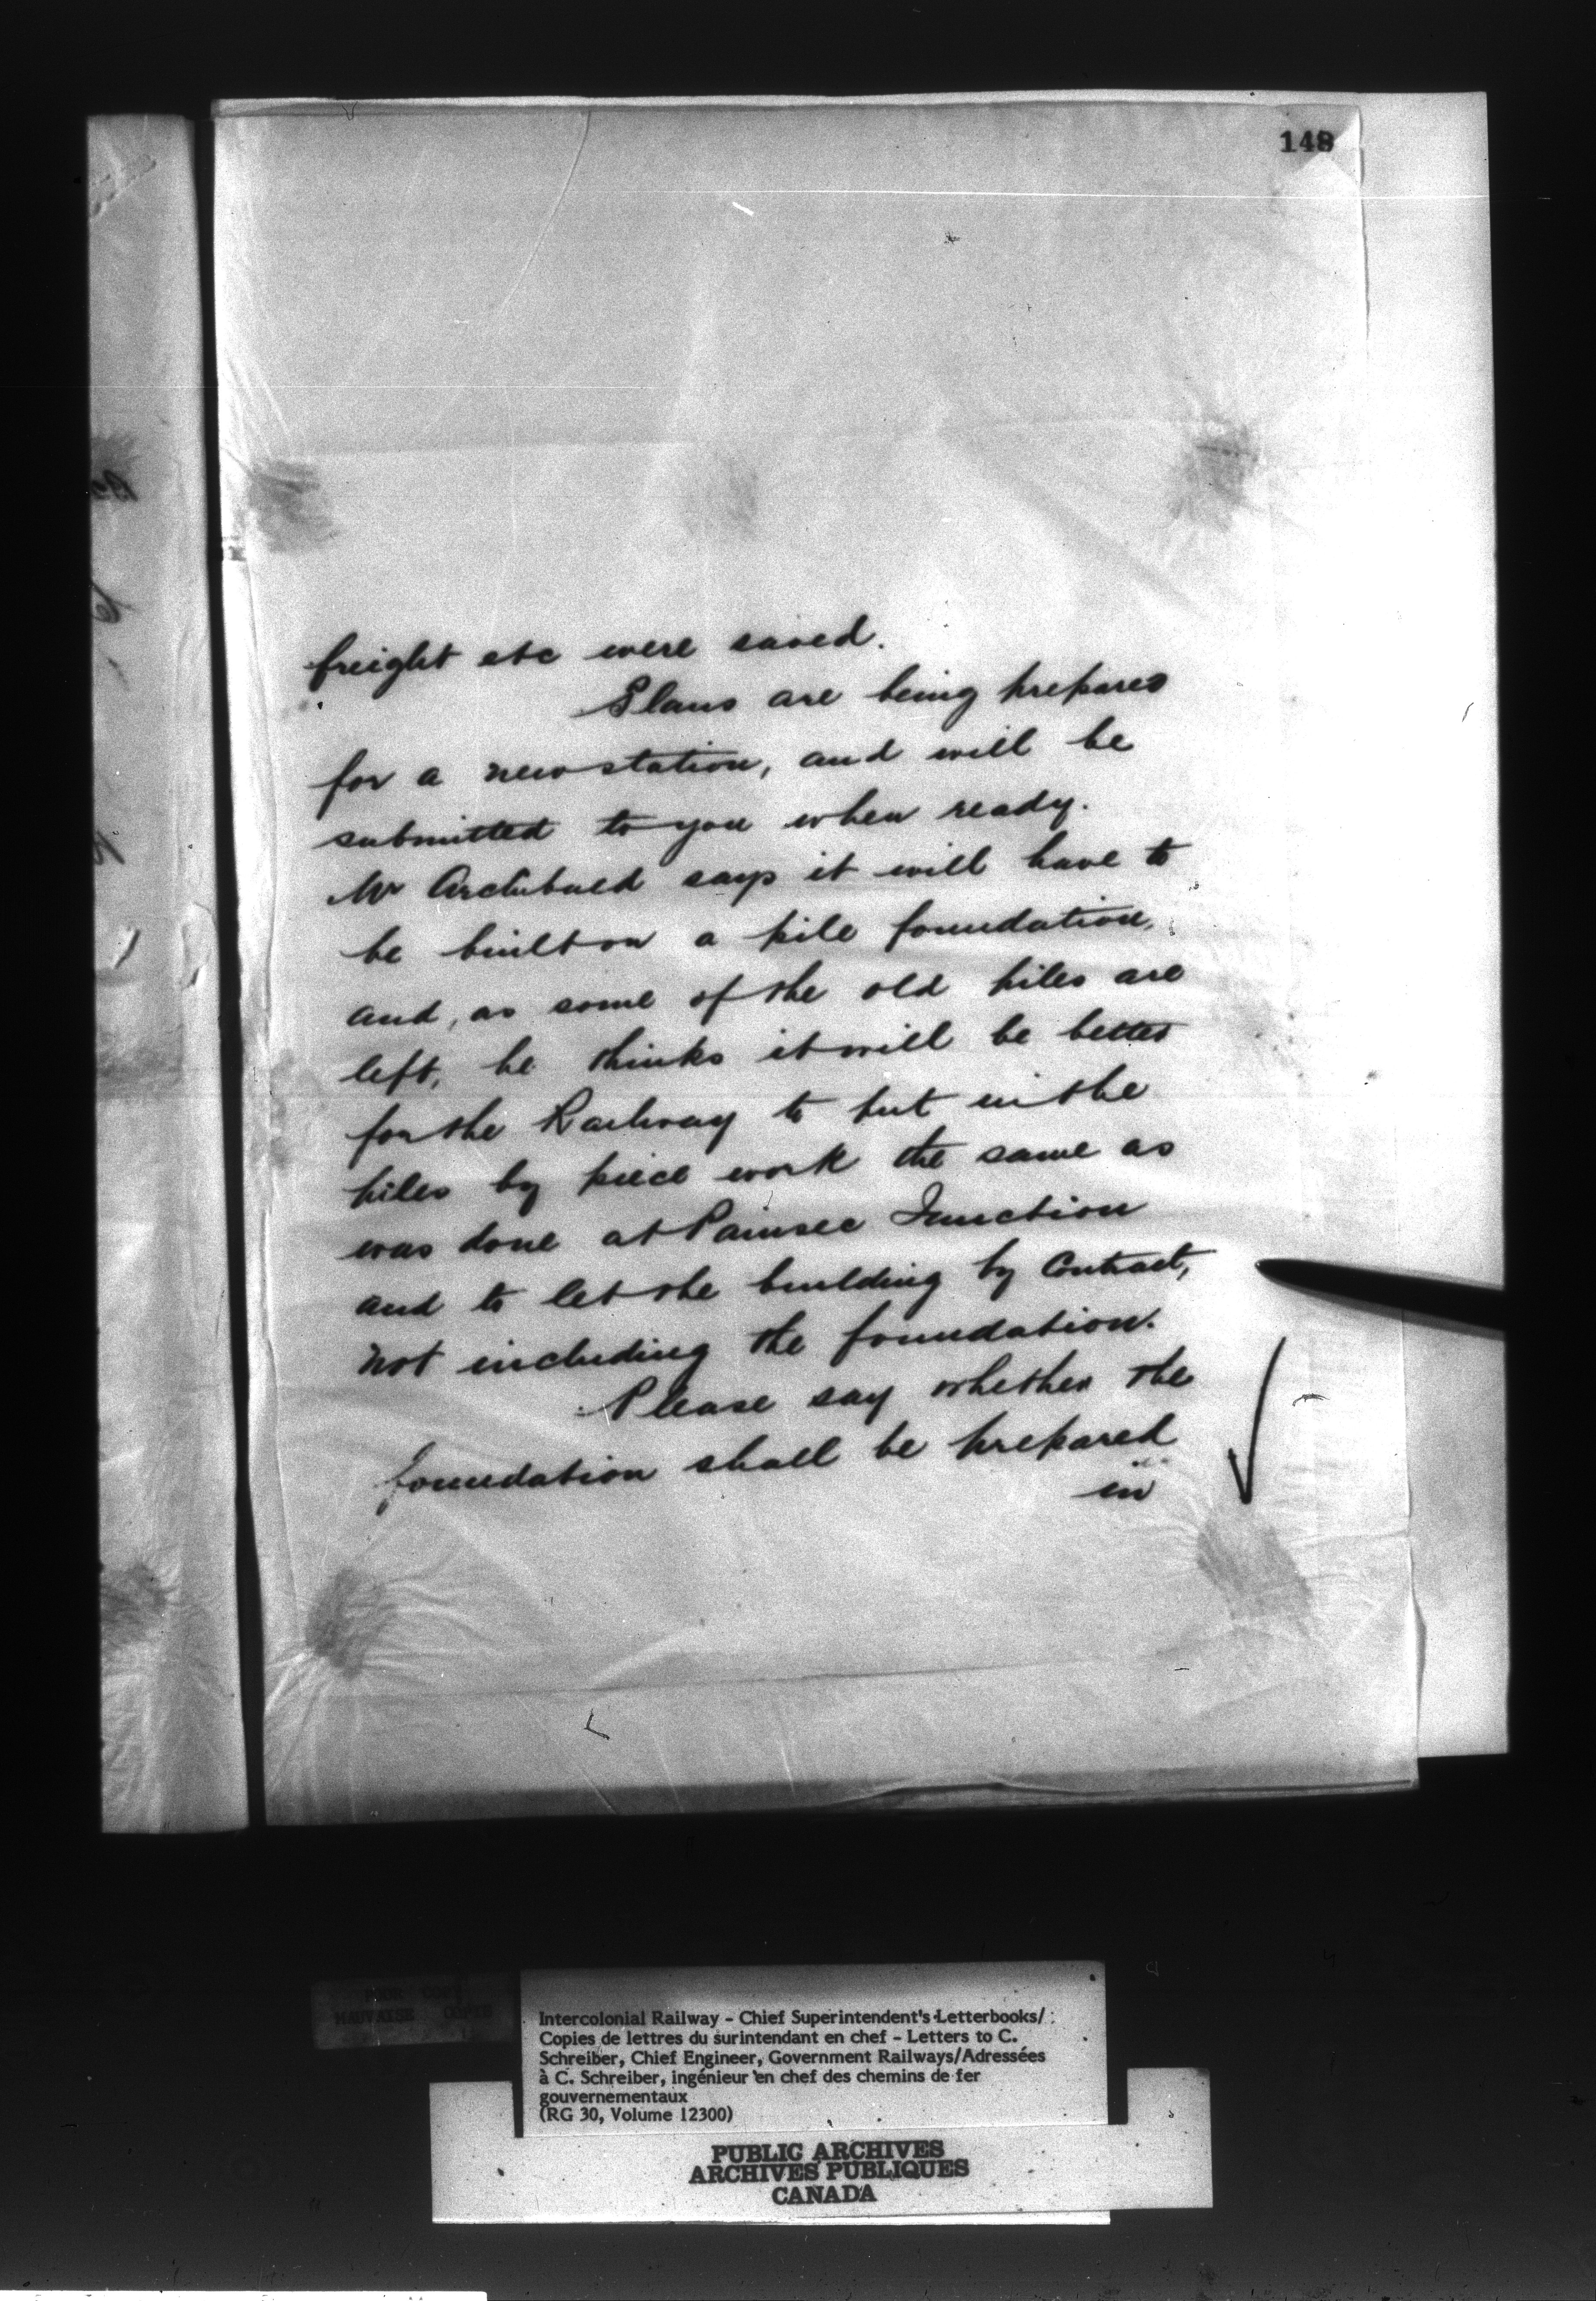 148
freight etc were saved.
Plans are being prepared
for a new station, and will be
submitted to you when ready.
Mr Archibald says it will have to
be built on a pile foundation,
and, as some of the old piles are
left, he thinks it will be better
for the Railway to put in the
piles by piece work the same as
was done at Painsec Junction
and to let the building by Contract,
not including the foundation.
Please say whether the
foundation shall be prepared
in
POOR COPY
MAUVAISE COPIE
Intercolonial Railway - Chief Superintendent's Letterbooks/
Copies de lettres du surintendant en chef - Letters to C.
Schreiber, Chief Engineer, Government Railways/Adressées
à C. Schreiber, ingénieur en chef des chemins de fer
gouvernementaux
(RG 30, Volume 12300)
PUBLIC ARCHIVES
ARCHIVES PUBLIQUES
CANADA